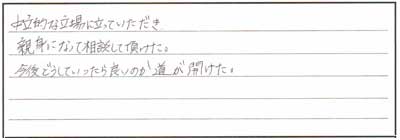 中立的な立場に立っていただき
親身になって相談して頂けた。
今後どうしていったら良いのか道が開けた。